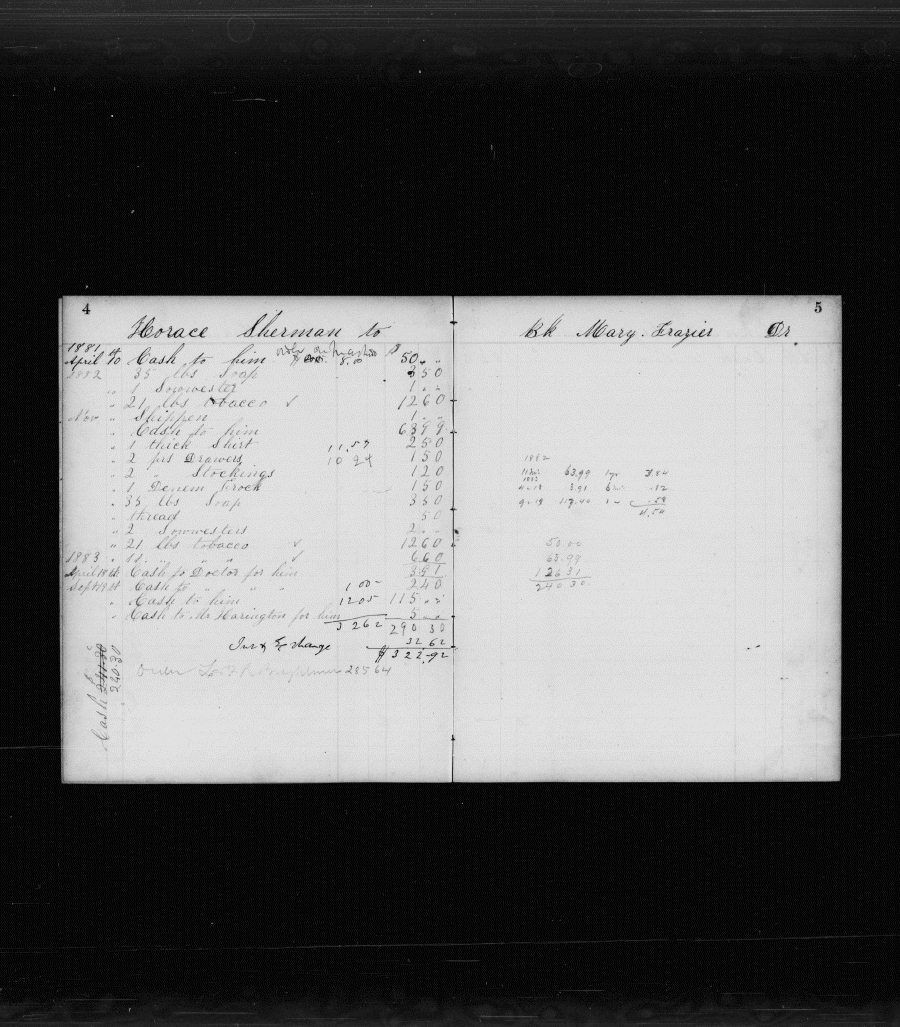 4
Horace Sherman to
1881
April 10 Cash to him 8.00 $ 50 " "
1882 " 35 lbs Soap 350
" 1 Sowwester 1 " "
" 21 lbs tobacco ✓ 1260
Nov " Shippen 1 " "
" Cash to him 6399
" 1 thick Shirt 11.57 250
" 2 prs Drawers 10 24 150
" 2 " Stockings 120
" 1 Denem Frock 150
" 35 lbs Soap 350
" thread 50
" 2 Sowwesters 2 " "
" 21 lbs tobacco ✓ 1260
1883 " 11 " " ✓ 660
April 18th Cash to Doctor for him 391
Sept 19th Cash to " " " 1 00 240
" Cash to him 12 05 115 " "
" Cash to Mr Harington for him 5 " "
3 2 6 2 290 30
Ins & Exchange 32 62
$ 322.92
285 64
Cash
240.30
5
Bk Mary Frazier Dr.
1882
63.99 1 yr 3.84
1883
4-18 3.91 6 .12
9-19 117.40 .58
4.54
50.00
63.99
126 31
240 30